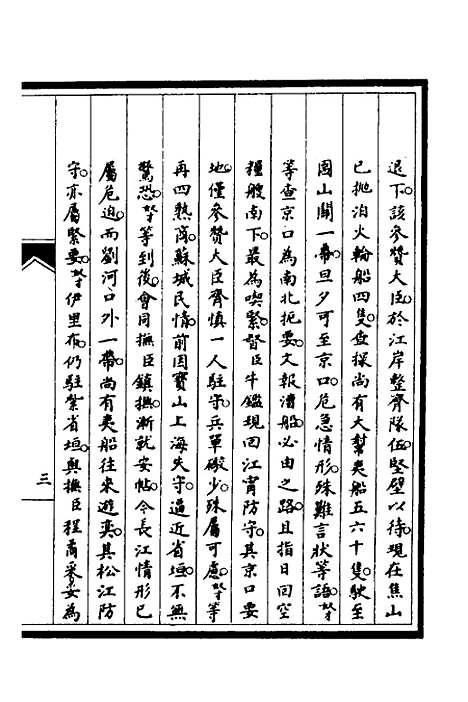 退下。該參贊大臣。於江岸整齊隊伍。堅壁以待。現在焦山
已拋泊火輪船四隻。查探尚有大幫夷船五六十隻。駛至
圌山關一帶。旦夕可至京口。危急情形。殊難言狀等語。奴才
等查京口為南北扼要。文報漕船必由之路。且指日回空
糧艘南下。最為喫緊。督臣牛鑑現回江甯防守。其京口要
地。僅參贊大臣齊慎一人駐守。兵單礮少。殊屬可慮。奴才等
再四熟商。蘇城民情。前因寶山上海失守。逼近省垣。不無
驚恐。奴才等到後。會同撫臣鎮撫。漸就安帖。今長江情形已
屬危迫。而劉河口外一帶。尚有夷船往來遊奕。其松江防
守。亦屬緊要。奴才伊里布。仍駐紮省垣。與撫臣程矞采妥為
三